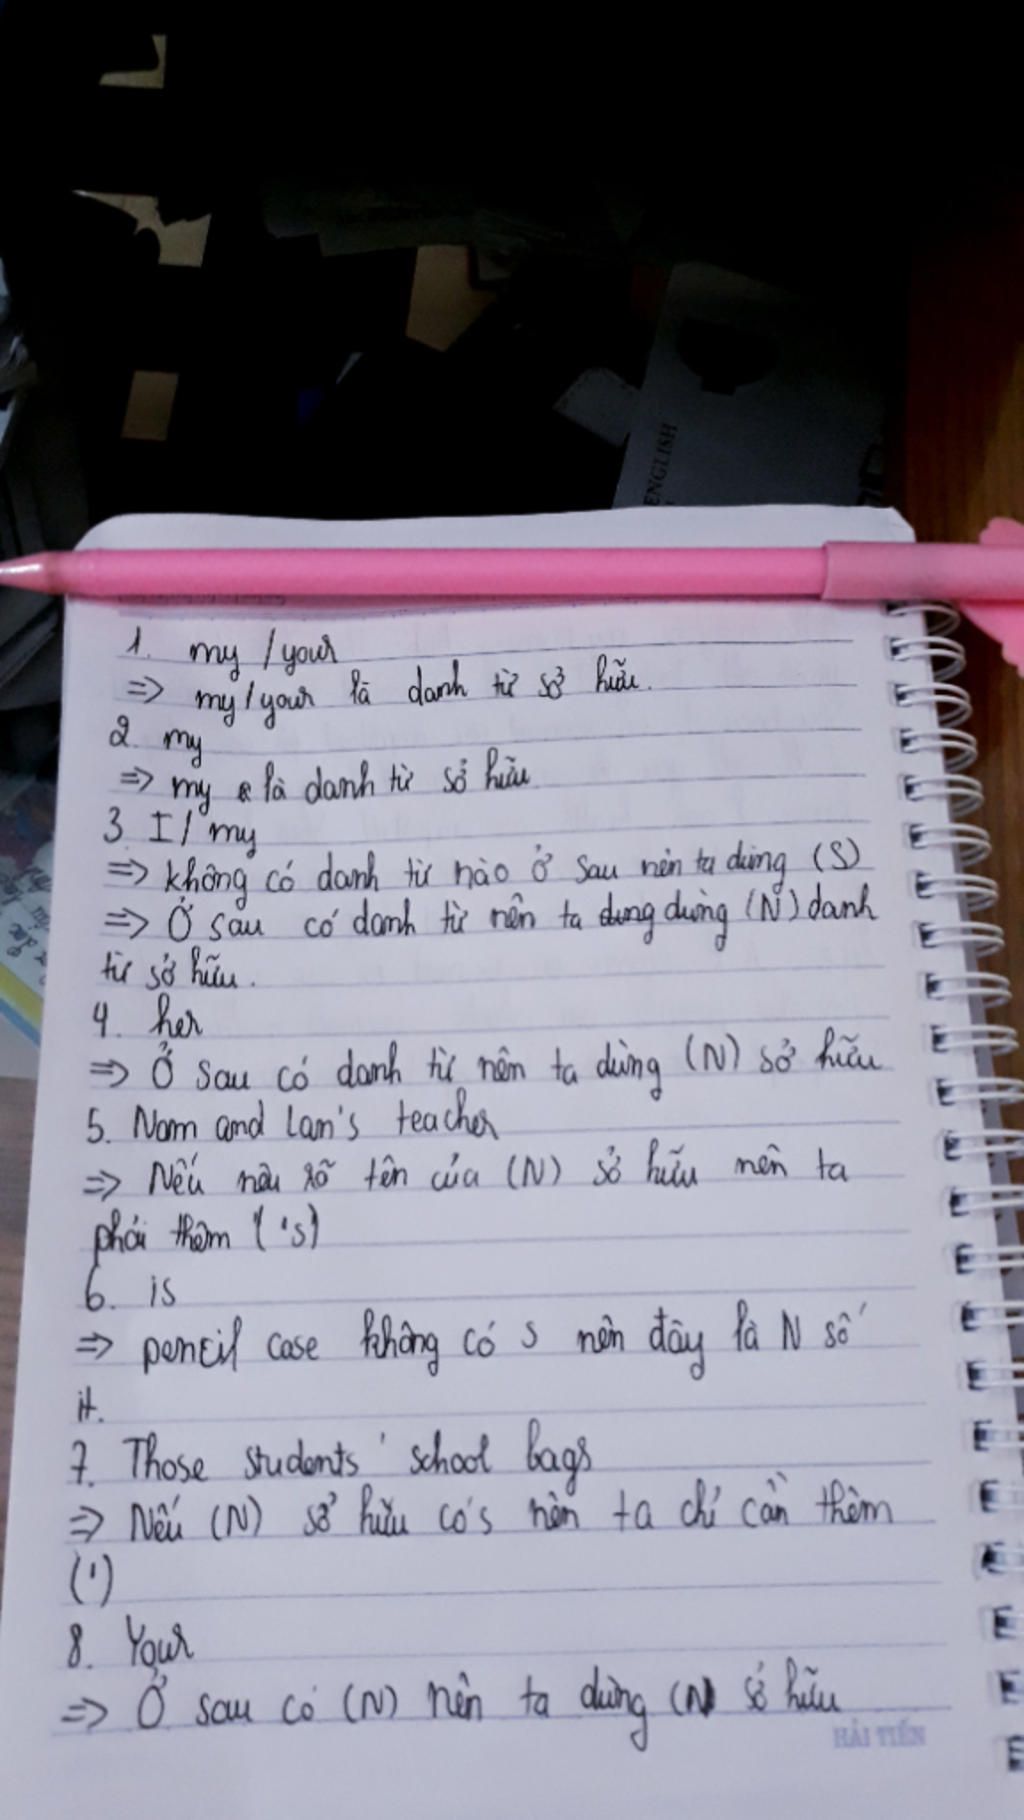 ENGLISH
1. my / your
=> my / your là danh từ sở hữu.
2. my
=> my là danh từ sở hữu
3. I / my
=> không có danh từ nào ở sau nên ta dùng (S)
=> Ở sau có danh từ nên ta dùng (N) danh
từ sở hữu.
4. her
=> Ở sau có danh từ nên ta dùng (N) sở hữu
5. Nam and Lan's teacher
=> Nếu nêu rõ tên của (N) sở hữu nên ta
phải thêm ('s)
6. is
=> pencil case không có s nên đây là N số
ít.
7. Those students' school bags
=> Nếu (N) sở hữu có s nên ta chỉ cần thêm
(')
8. Your
=> Ở sau có (N) nên ta dùng (N) sở hữu
HẢI TIẾN